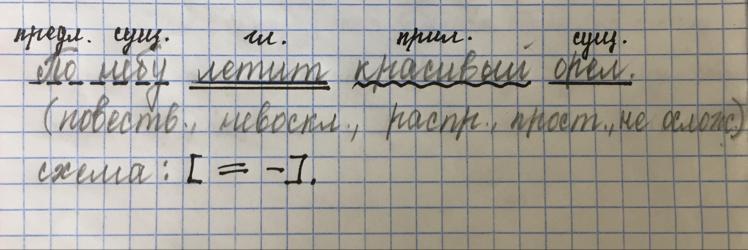 предл. сущ. гл. прил. сущ.
По небу летит красивый орел.
(повеств., невоскл., распр., прост., не ослож)
схема: [ = - ].